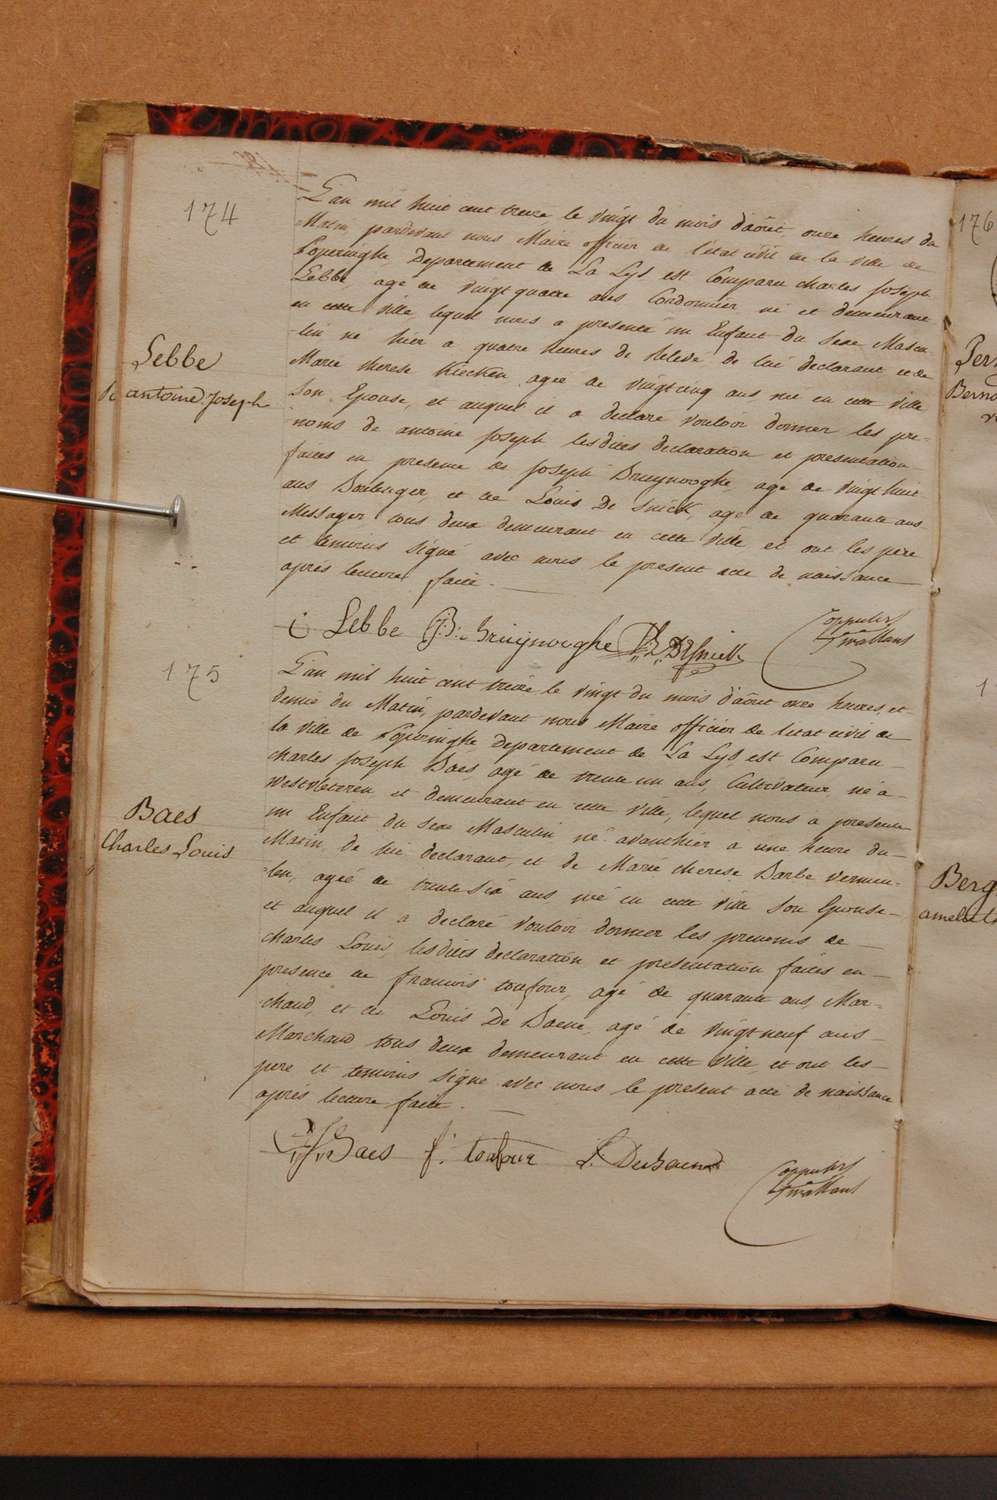 174
L'an mil huit cent treize le vingt du mois d'aôut onze heures du
Matin, pardevant nous Maire officier de l'état civil de la ville de
Poperinghe Departement de La Lys est Comparu charles joseph
Lebbe agé de vingt quatre ans Cordonnier né et demeurant
en cette ville lequel nous a presenté un Enfant du Sexe Mascu-
lin né hier a quatre heures de Relevée de lui declarant et de
Marie therese Kiecken agée de vingt cinq ans née en cette ville
Son Epouse, et auquel il a declaré vouloir donner les pre-
noms de antoine joseph lesdites declaration et presentation
faites en presence de joseph Bruynooghe agé de vingt huit
ans Boulanger, et de Louis De Snick, agé de quarante ans
Messager tous deux demeurant en cette ville et ont les pere
et temoins signé avec nous le present acte de naissance
après lecture faite.
Lebbe
antoine joseph
C Lebbe Bruijnooghe L. D. Snick
175
L'an mil huit cent treize le vingt du mois d'aôut onze heures et
demie du Matin, pardevant nous Maire officier de l'état civil de
la ville de Poperinghe Departement de La Lys est Comparu
charles joseph Baes agé de trente un ans, Cultivateur né a
westvleteren et demeurant en cette ville, lequel nous a presenté
un Enfant du Sexe Masculin né avanthier a une heure du
Matin, de lui declarant, et de Marie therese Barbe vermeu-
len, agée de trente six ans née en cette ville Son Epouse
et auquel il a declaré vouloir donner les prenoms de
charles Louis, lesdites declaration et presentation faites en
presence de francois toufour, agé de quarante ans, Mar-
chand, et de Louis De Baene, agé de vingt neuf ans
Marchand tous deux demeurant en cette ville et ont les
pere et temoins signé avec nous le present acte de naissance
après lecture faite.
Baes
Charles Louis
Baes f. toufour L. Debaene
176
Bern
Berg